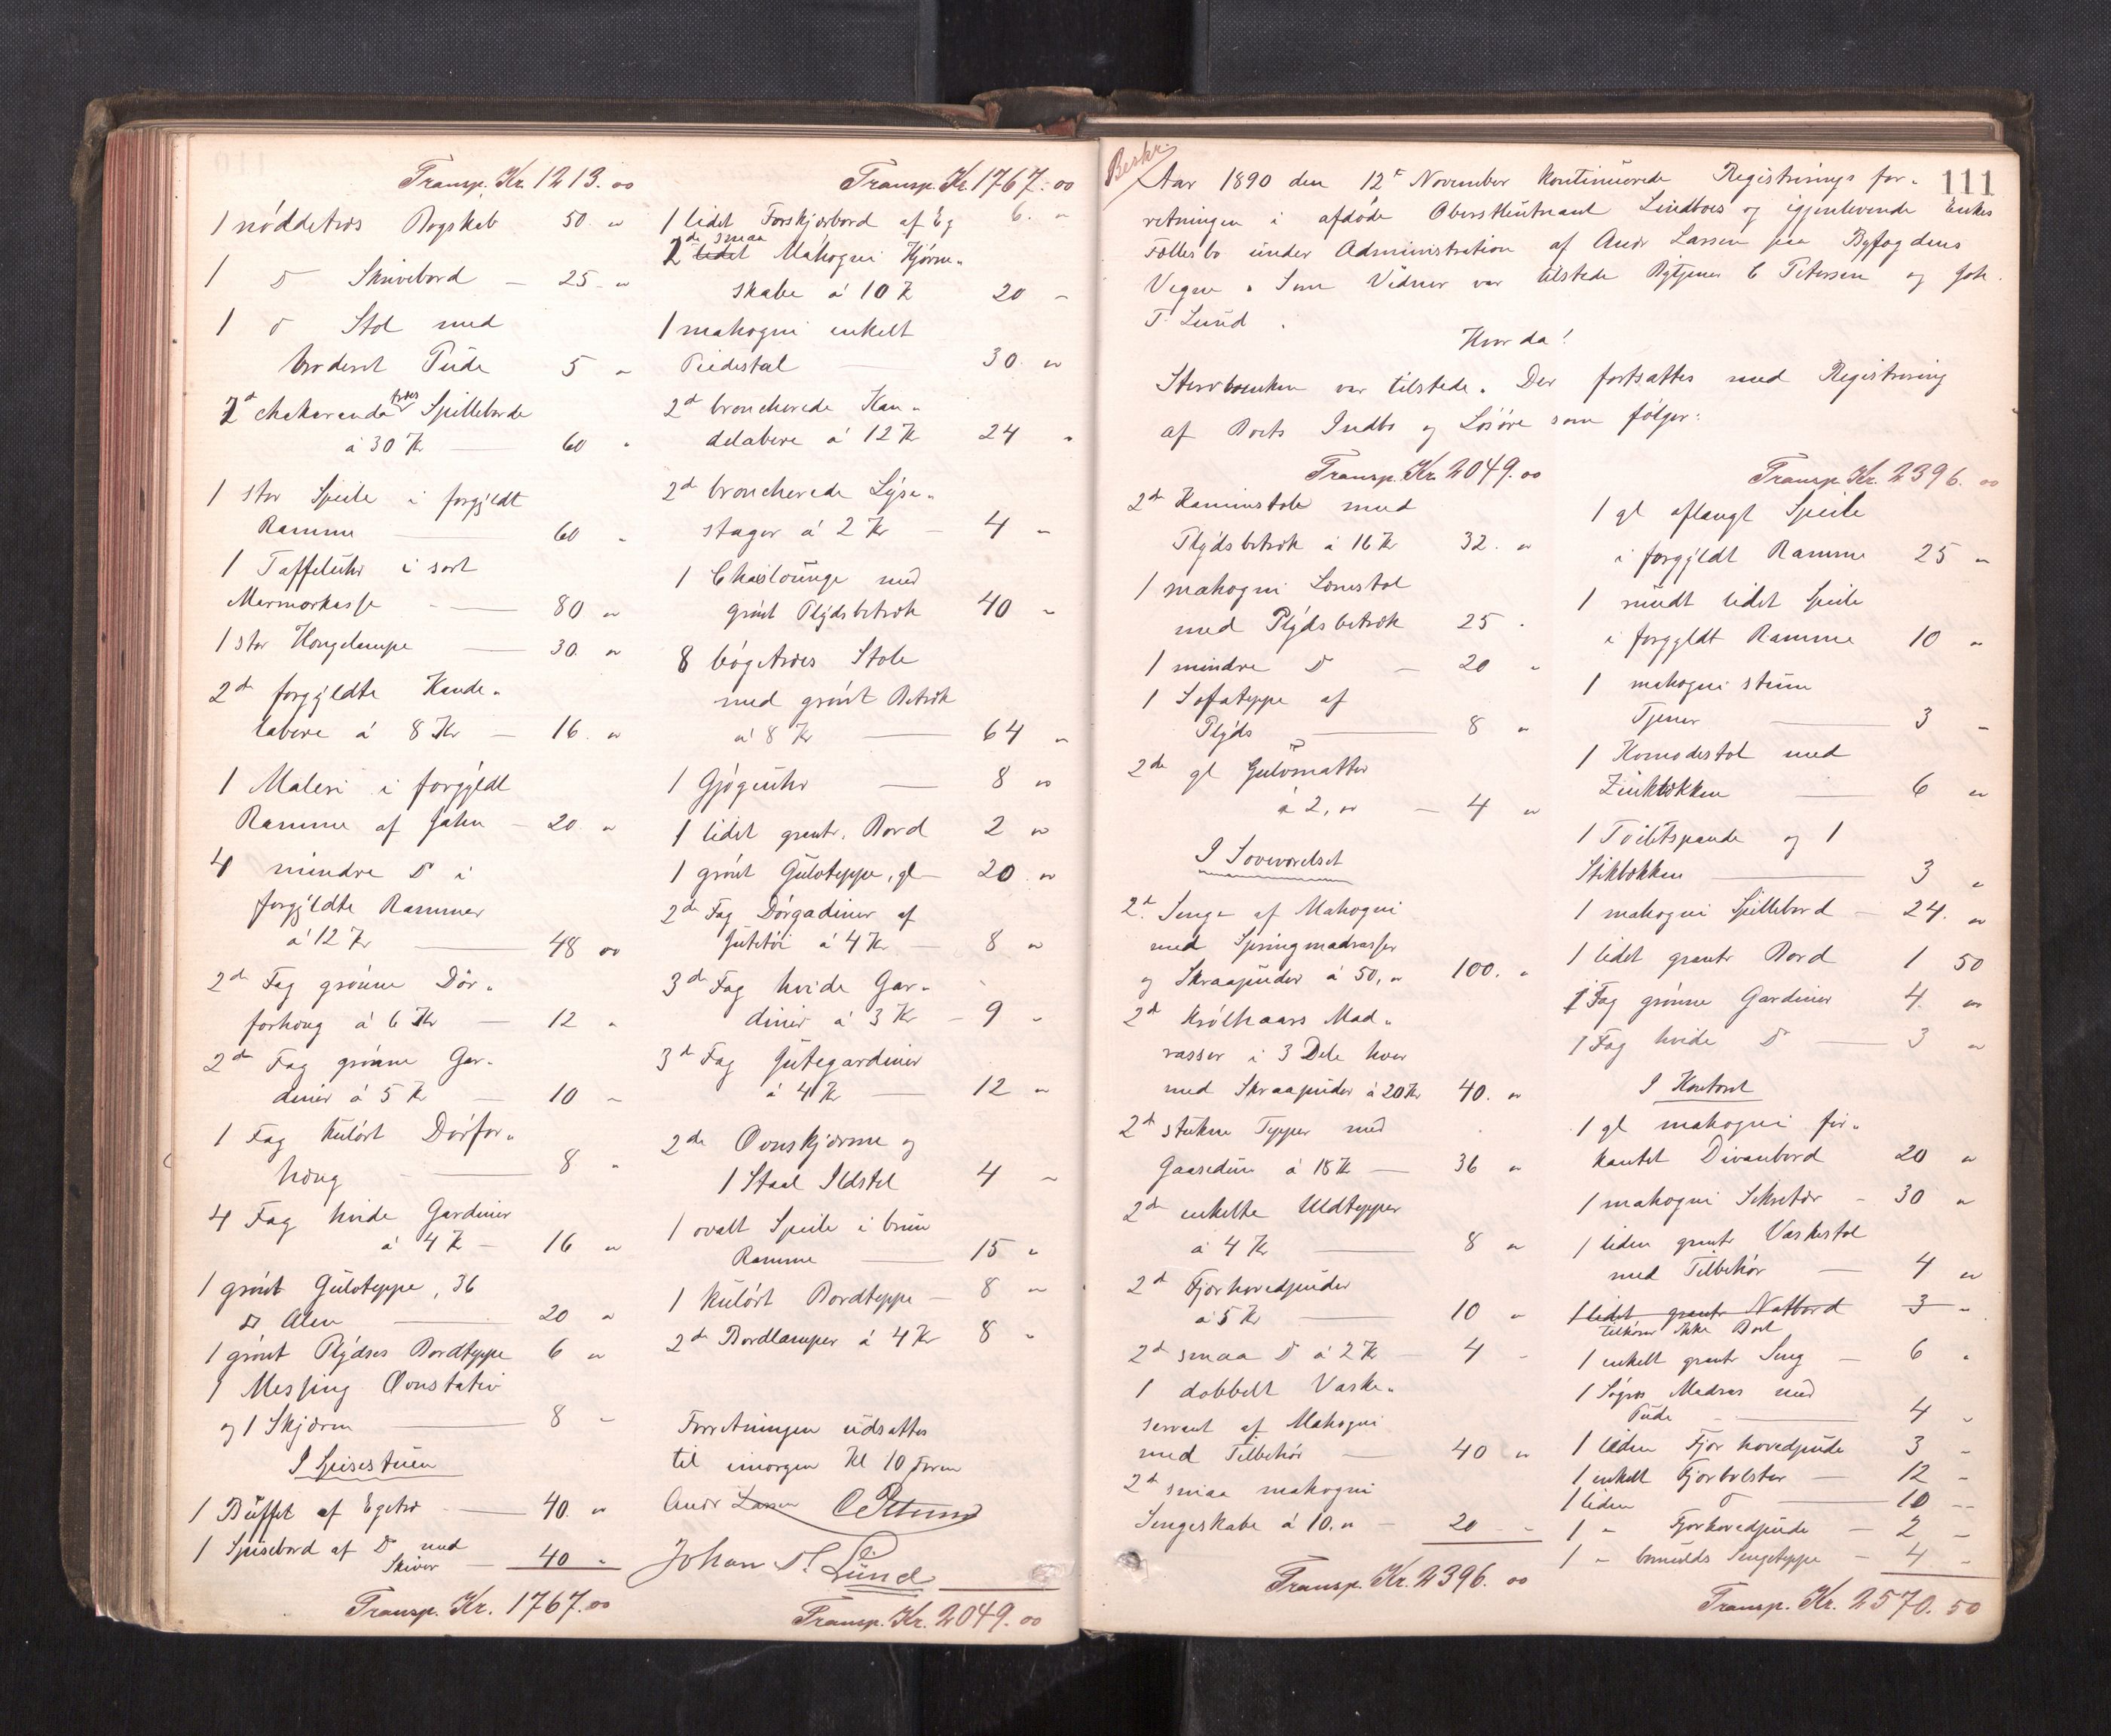 Transp. Kr. 1213. 00
1 nøddetræs Bogskab 50. „
1 D Skrivebord — 25 „
1 D Stol med
broderet Pude 5 „
2de chakarandatræes Spilleborde
á 30 Kr — 60 „
1 stor Speile i forgyldt
Ramme — 60 „
1 Taffeluhr i sort
Marmorkasse — 80 „
1 stor Hængelampe — 30. „
2de forgyldte Kande„
labere á 8 Kr — 16. „
1 Maleri i forgyldt
Ramme af Jahn — 20 „
4 mindre D i
forgyldte Rammer
á 12 Kr — 48 00
2de Fag grønne Dør„
forhæng á 6 Kr — 12 „
2de Fag grønne Gar„
diner á 5 Kr — 10 „
1 Fag kulørt Dørfor„
hæng — 8 „
4 Fag hvide Gardiner
á 4 Kr — 16 „
1 grønt Gulvteppe, 36
□ Alen — 20 „
1 grønt Plydses Bordteppe 6 „
1 Messing Ovnstativ
og 1 Skjærm — 8 „
I Spisestuen
1 Buffet af Egetræ — 40. „
1 Spisebord af D med
Skiver — 40 „
Transp. Kr. 1767. 00
Transp. Kr. 1767. 00
1 lidet Forskjærbord af Eg 6. „
2de smaa lidet Mahogni Hjørne„
skabe á 10 Kr 20 „
1 mahogni enkelt
Piedestal — 30. „
2de broncherede Kan„
delabere á 12 Kr 24 „
2de broncherede Lyse„
stager á 2 Kr — 4 „
1 Chaislounge med
grønt Plydsbetræk 40 „
8 bøgetræes Stole
med grønt Betræk
á 8 Kr — 64 „
1 Gjøguhr — 8 „
1 lidet grantr. Bord 2 „
1 grønt Gulvteppe, gl — 20 „
2de Fag Dørgadiner af
Jutetøi á 4 Kr — 8 „
3de Fag hvide Gar„
diner á 3 Kr — 9 „
3de Fag Jutegardiner
á 4 Kr — 12 „
2de Ovnskjærme og
1 Staal Ildstel 4 „
1 ovalt Speile i brun
Ramme — 15 „
1 kulørt Bordteppe — 8 „
2de Bordlamper á 4 Kr 8 „
Forretningen udsattes
til imorgen Kl 10 Form
Andr Larsen
Johan T. Lund
Transp. Kr. 2049. 00
Beskr.
111
Aar 1890 den 12te November kontinuerede Registrerings for„
retningen i afdøde Oberstleutnant Lindboes og igjenlevende Enkes
Fællesbo under Administration af Andr Larsen paa Byfogdens
Vegne. Som Vidner var tilstede Bytjener C Petersen og Joh.
T. Lund.
Hvor da!
Stervboenken var tilstede. Der fortsattes med Registrering
af Boets Indbo og Løsøre som følger:
Transp. Kr. 2049. 00
2de Kaminstole med
Plydsbetræk á 16 Kr 32. „
1 mahogni Lænestol
med Plydsbetræk 25 „
1 mindre D — 20 „
1 Sofateppe af
Plyds — 8 „
2de gl Gulvmatter
á 2, „ — 4 „
I Soveværelset
2de Senge af Mahogni
med Springmadrasser
og Skraapuder á 50, „ 100. „
2de Krølhaars Mad„
rasser i 3 Dele hver
med Skraapuder á 20 Kr 40. „
2de stukne Tepper med
Gaasedun á 18 Kr — 36 „
2de enkelte Uldtepper
á 4 Kr — 8 „
2de Fjærhovedpuder
á 5 Kr — 10 „
2de smaa D á 2 Kr — 4 „
1 dobbelt Vaske„
servant af Mahogni
med Tilbehør — 40 „
2de smaa mahogni
Sengeskabe á 10. „ — 20 „
Transp. Kr. 2396. 00
Transp. Kr. 2396. 00
1 gl aflangt Speile
i forgyldt Ramme 25 „
1 rundt lidet Speile
i forgyldt Ramme 10 „
1 mahogni stum
Tjener — 3 „
1 Komodestol med
Zinkbækken — 6 „
1 Toiletspande og 1
Stikbækken — 3 „
1 mahogni Spillebord — 24. „
1 lidet grantr Bord 1 50
1 Fag grønne Gardiner 4. „
1 Fag hvide D — 3 „
I Kontoret
1 gl mahogni fir„
kantet Divanbord 20 „
1 mahogni Sekretær — 30 „
1 liden grantr Vaskestol
med Tilbehør — 4 „
1 lidet grantr Natbord 3 „
tilhører ikke Boet
1 enkelt grantr Seng — 6 „
1 Søgræs Madras med
Pude — 4 „
1 liden Fjær hovedpude 3 „
1 enkelt Fjærbolster — 12 „
1 liden D — 10 „
1 „ Fjærhovedpude — 2 „
1 „ bomulds Sengeteppe — 4 „
Transp. Kr. 2570. 50